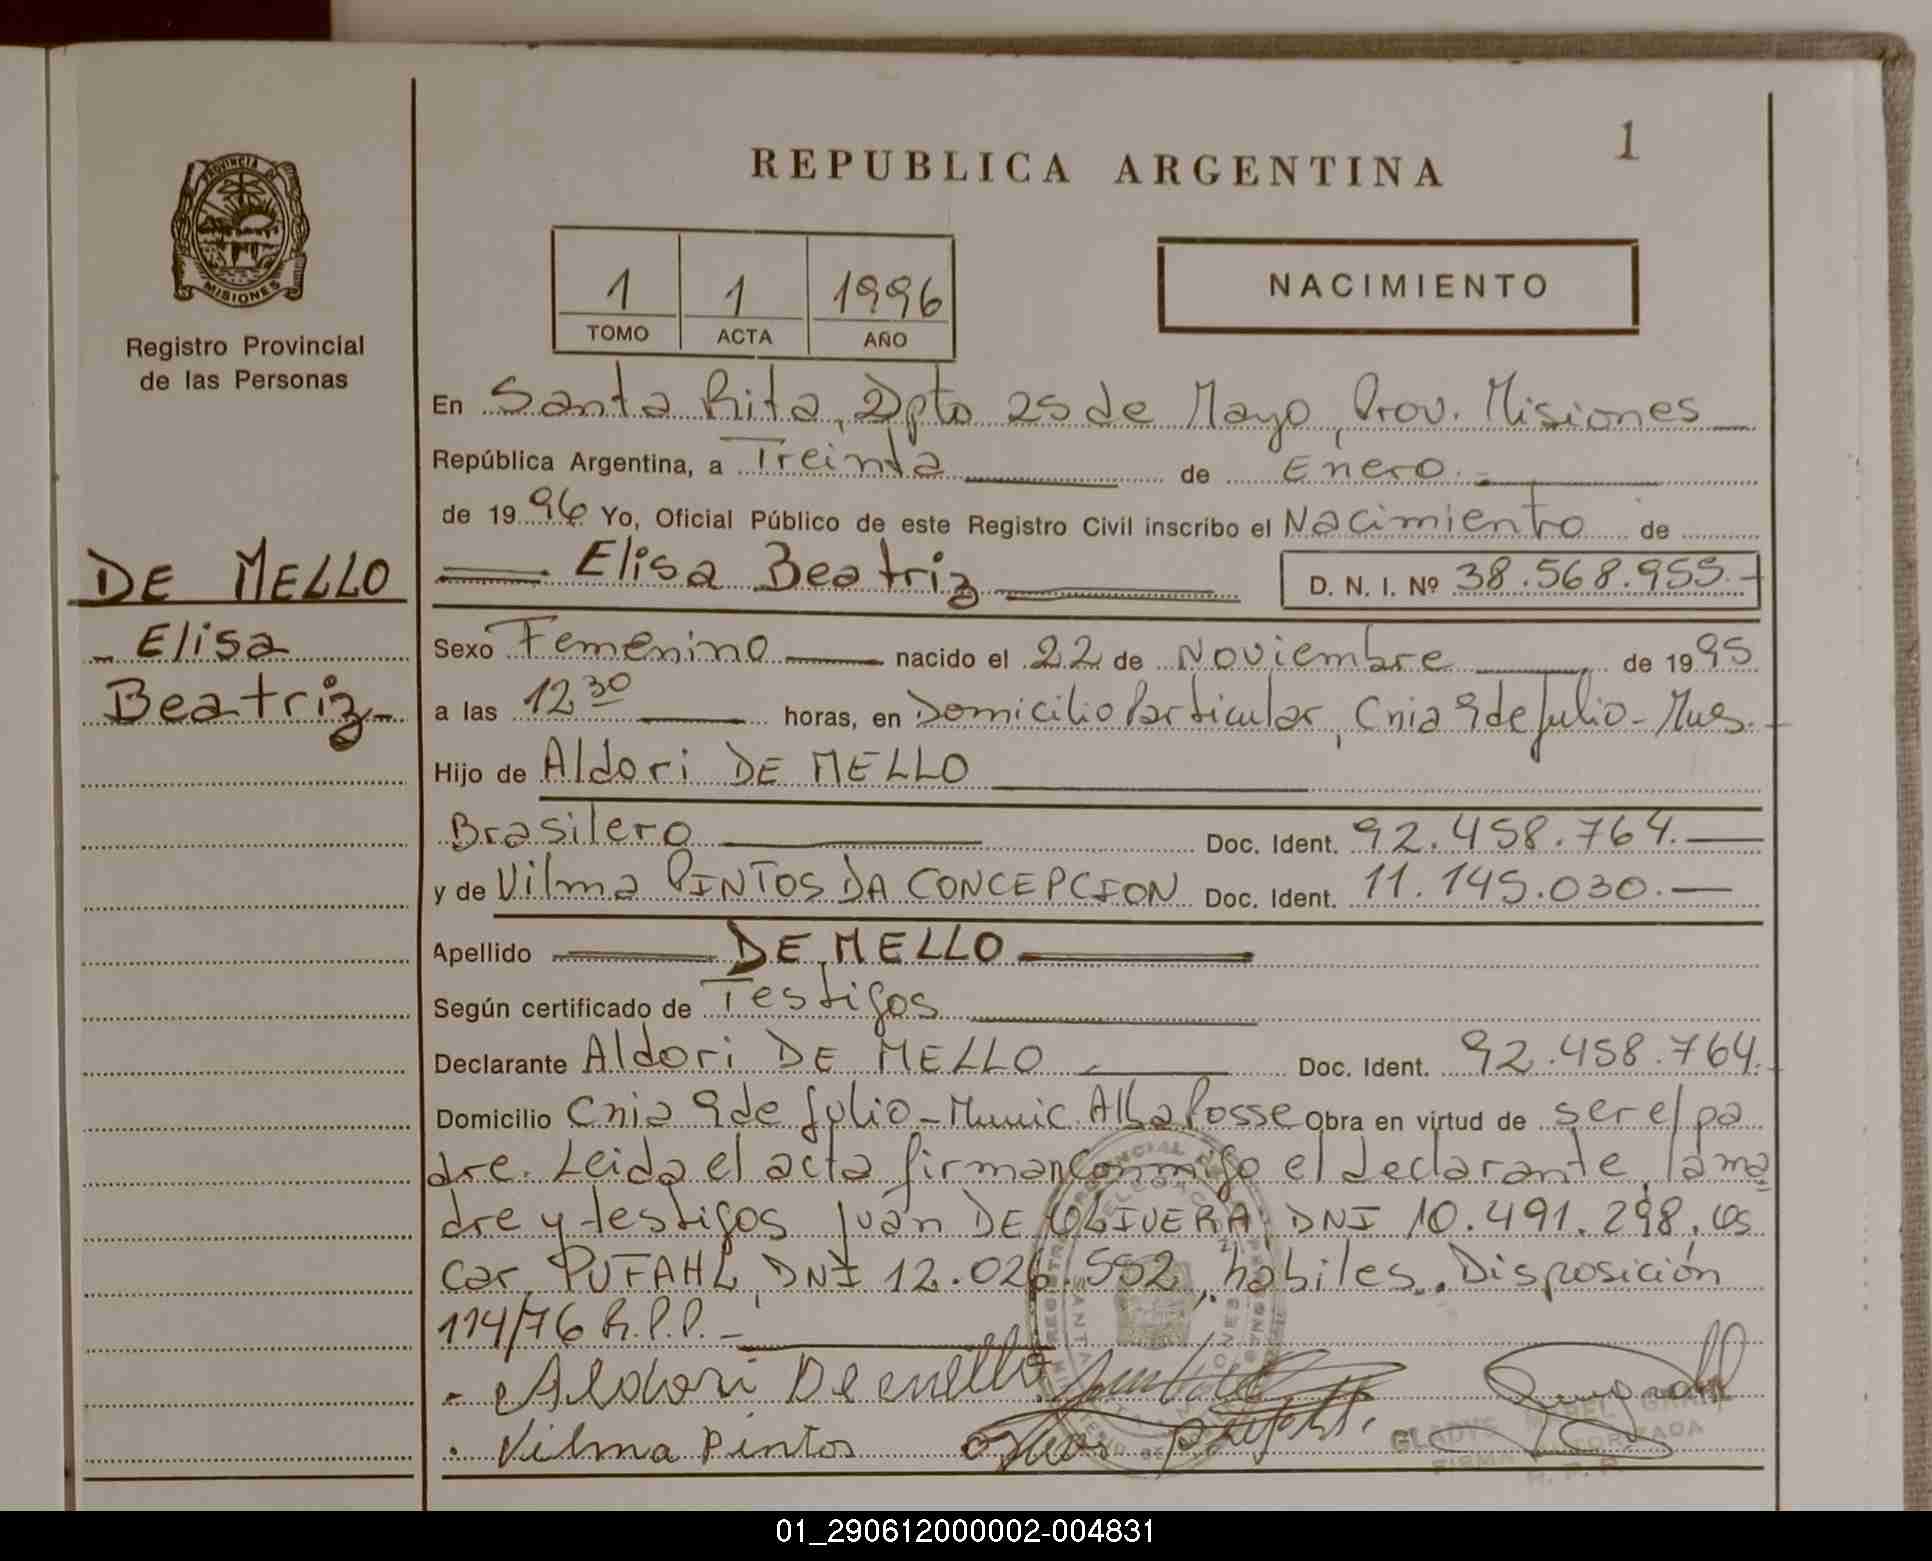 REPUBLICA ARGENTINA
1
PROVINCIA DE
MISIONES
Registro Provincial
de las Personas
1 1 1996
TOMO ACTA AÑO
NACIMIENTO
En Santa Rita, Dpto 25 de Mayo, Prov. Misiones
República Argentina, a Treinta de Enero
de 1996 Yo, Oficial Público de este Registro Civil inscribo el Nacimiento de
DE MELLO
Elisa
Beatriz
Elisa Beatriz D. N. I. Nº 38.568.955.-
Sexo Femenino nacido el 22 de Noviembre de 1995
a las 12 30 horas, en Domicilio Particular, Cnia 9 de Julio - Mnes.
Hijo de Aldori DE MELLO
Brasilero Doc. Ident. 92.458.764.
y de Vilma PINTOS DA CONCEPCION Doc. Ident. 11.145.030.
Apellido DE MELLO
Según certificado de Testigos
Declarante Aldori DE MELLO Doc. Ident. 92.458.764.
Domicilio Cnia 9 de Julio - Munic. Alba Posse Obra en virtud de ser el pa
dre. Leida el acta firman conmigo el declarante, la ma
dre y testigos Juan DE OLIVERA DNI 10.491.298, Os
car PUFAHL, DNI 12.026.552, habiles. Disposición
114/76 R.P.P.-
Aldori De mello
Vilma Pintos
GLADYS
01_290612000002-004831